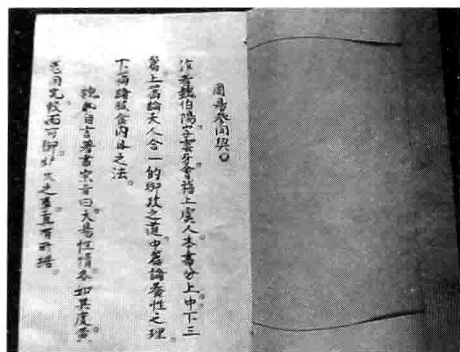 周易參同契。
作者魏伯陽。字雲牙。會稽上虞人。本書分上中下三
篇上篇論天人合一的御政之道。中篇論養性之理。
下篇論服食内丹之法。
魏氏自言著書宗旨曰。大易性情。各如其度。黄
老用究。較而可御。炉火之事。真有所据。